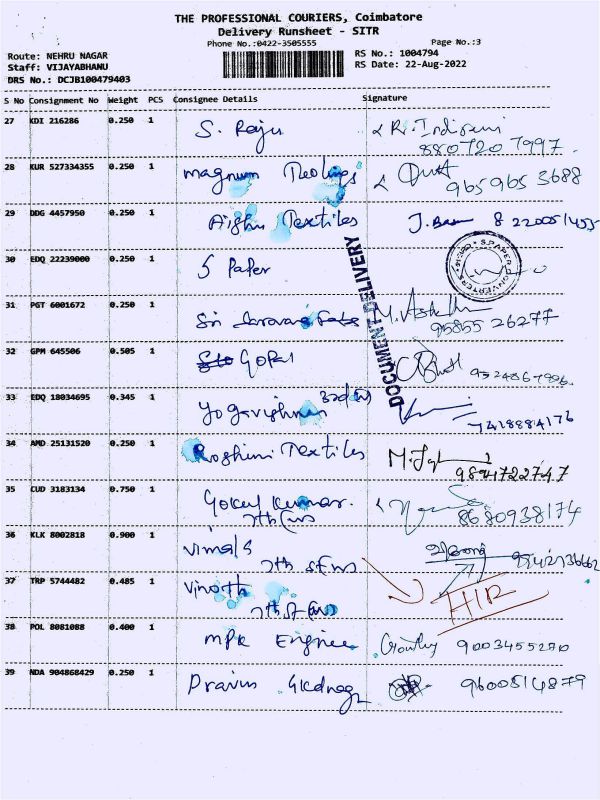 THE PROFESSIONAL COURIERS, Coimbatore
Delivery Runsheet - SITR
Phone No.:0422-3505555 Page No.:3
Route: NEHRU NAGAR RS No.: 1004794
Staff: VIJAYABHANU RS Date: 22-Aug-2022
DRS No.: DCJB100479403
S No Consignment No Weight PCS Consignee Details Signature
27 KDI 216286 0.250 1 S. Raju R. Indirani
8807207997.
28 KUR 527334355 0.250 1 magnum
9659653688
29 DDG 4457950 0.250 1 Textiles 8220051455
30 EDQ 22239000 0.250 1 S Paper
S.PAPER CONVERTERS
31 PGT 6001672 0.250 1 Sri
95855 26277
DOCUMENT DELIVERY
32 GPM 645506 0.505 1 GOPAL
33 EDQ 18034695 0.345 1 3rd
7418884176
34 AMD 25131520 0.250 1 Roshini Textiles
9894722747
35 CUD 3183134 0.750 1 Gokul Kumar.
7th 8680938174
36 KLK 8002818 0.900 1 Vimal S
7th
37 TRP 5744482 0.485 1 Vinoth
7th
38 POL 8081088 0.400 1 MPK Enginee 9003455270
39 NDA 904868429 0.250 1 Pravin 9600514879